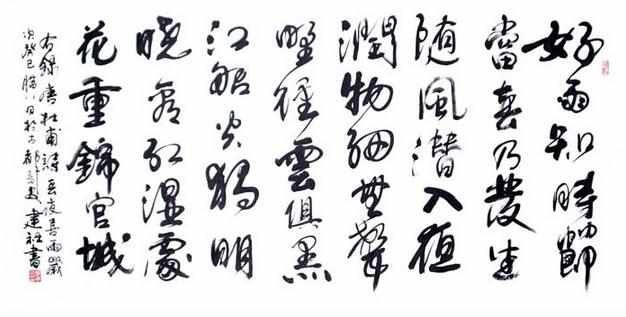 好雨知時節
當春乃發生
随風潜入夜
潤物細無聲
野徑雲俱黑
江船火獨明
曉看紅濕處
花重錦官城
右錄唐杜甫詩春夜喜雨歲
次癸巳臘八日於古都長安建社書